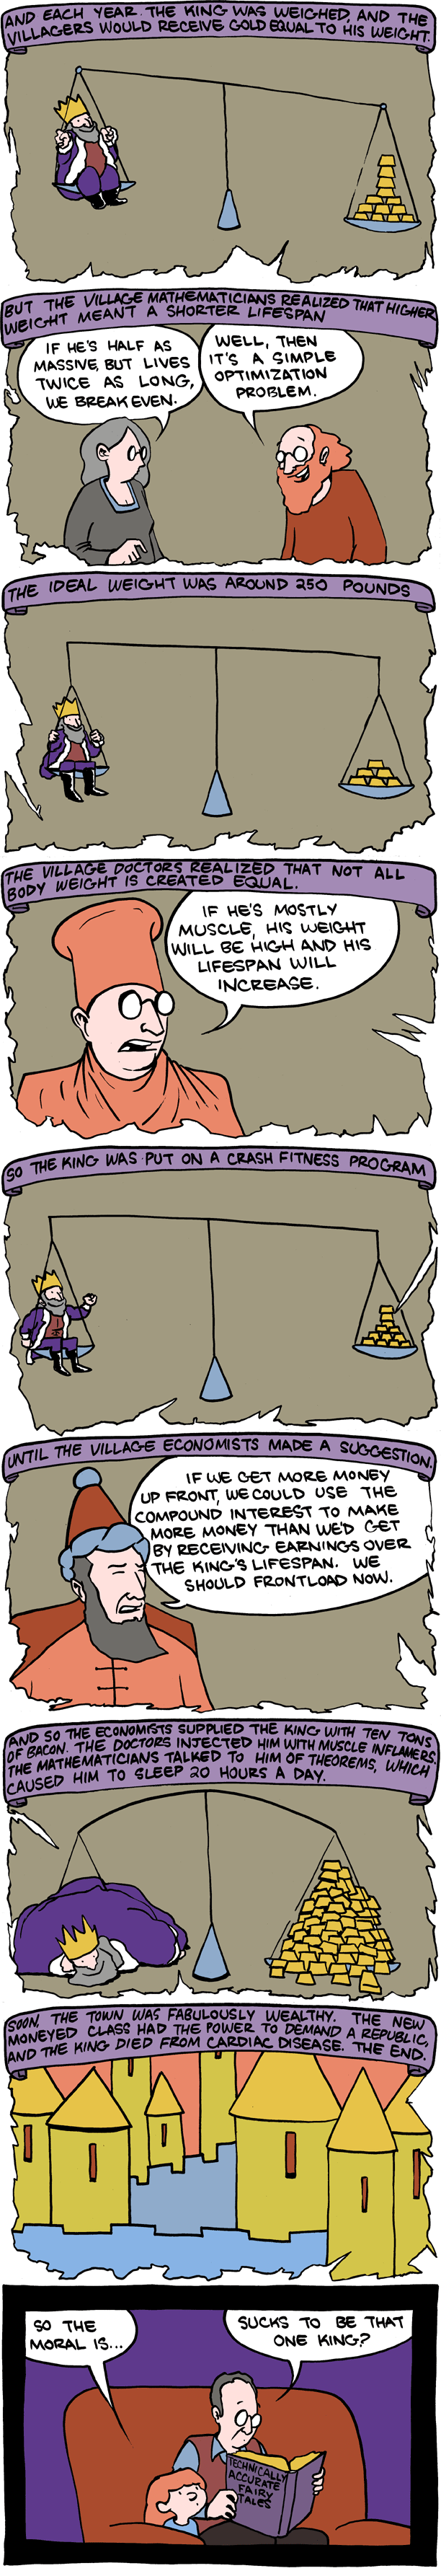 AND EACH YEAR THE KING WAS WEIGHED, AND THE
VILLAGERS WOULD RECEIVE GOLD EQUAL TO HIS WEIGHT.
BUT THE VILLAGE MATHEMATICIANS REALIZED THAT HIGHER
WEIGHT MEANT A SHORTER LIFESPAN
IF HE'S HALF AS
MASSIVE, BUT LIVES
TWICE AS LONG,
WE BREAK EVEN.
WELL, THEN
IT'S A SIMPLE
OPTIMIZATION
PROBLEM.
THE IDEAL WEIGHT WAS AROUND 250 POUNDS
THE VILLAGE DOCTORS REALIZED THAT NOT ALL
BODY WEIGHT IS CREATED EQUAL.
IF HE'S MOSTLY
MUSCLE, HIS WEIGHT
WILL BE HIGH AND HIS
LIFESPAN WILL
INCREASE.
SO THE KING WAS PUT ON A CRASH FITNESS PROGRAM
UNTIL THE VILLAGE ECONOMISTS MADE A SUGGESTION.
IF WE GET MORE MONEY
UP FRONT, WE COULD USE THE
COMPOUND INTEREST TO MAKE
MORE MONEY THAN WE'D GET
BY RECEIVING EARNINGS OVER
THE KING'S LIFESPAN. WE
SHOULD FRONTLOAD NOW.
AND SO, THE ECONOMISTS SUPPLIED THE KING WITH TEN TONS
OF BACON. THE DOCTORS INJECTED HIM WITH MUSCLE INFLAMERS.
THE MATHEMATICIANS TALKED TO HIM OF THEOREMS, WHICH
CAUSED HIM TO SLEEP 20 HOURS A DAY.
SOON, THE TOWN WAS FABULOUSLY WEALTHY. THE NEW
MONEYED CLASS HAD THE POWER TO DEMAND A REPUBLIC,
AND THE KING DIED FROM CARDIAC DISEASE. THE END.
SO THE
MORAL IS...
SUCKS TO BE THAT
ONE KING?
TECHNICALLY
ACCURATE
FAIRY
TALES